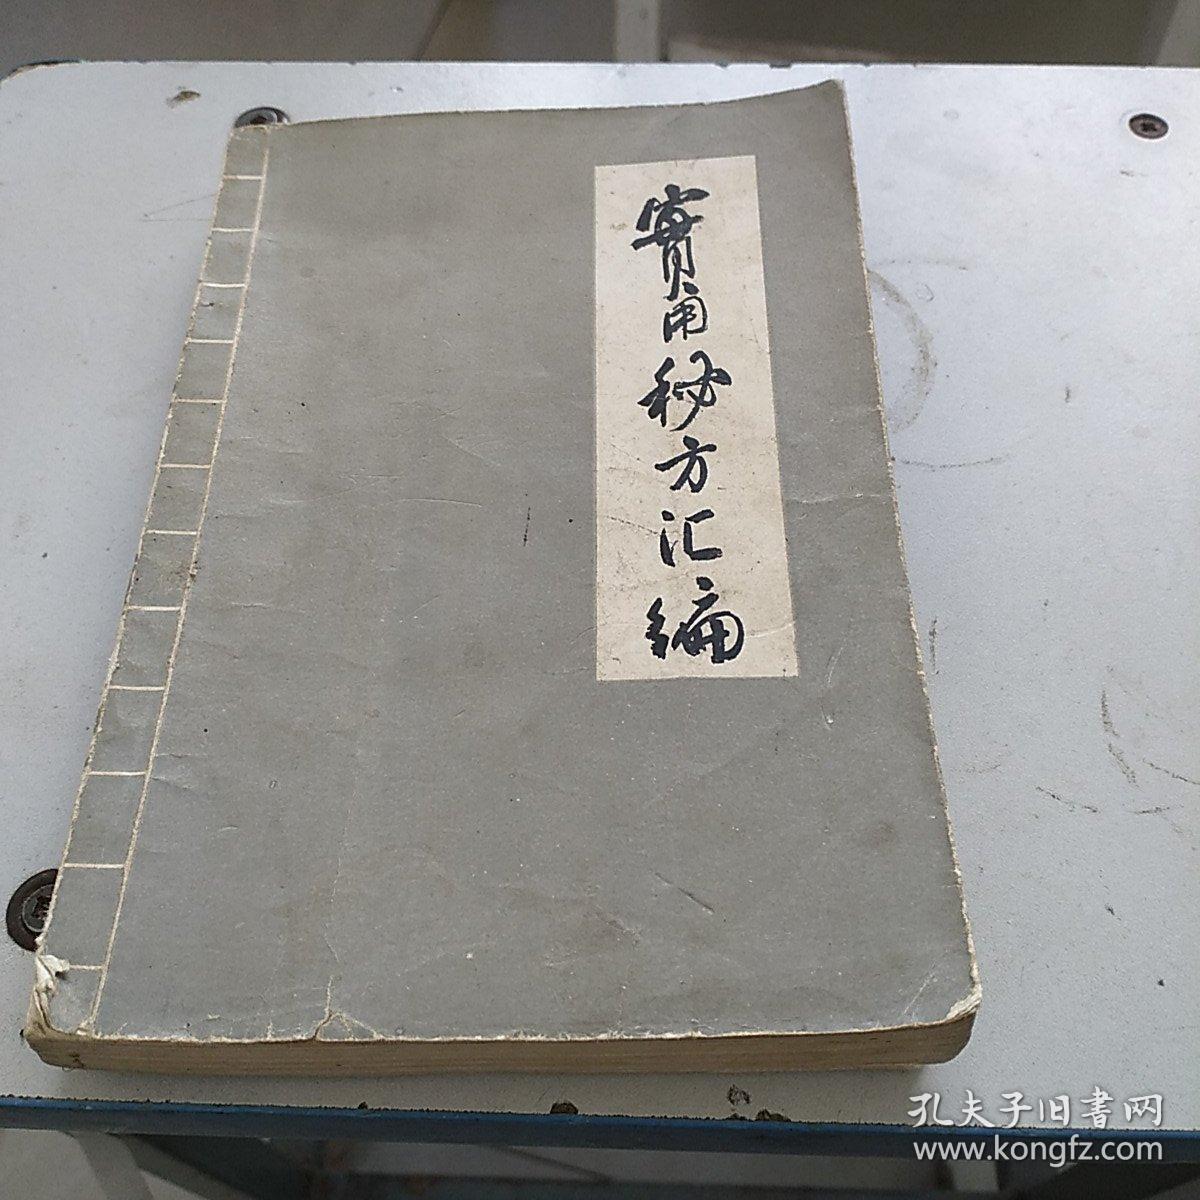 實用秘方汇编
孔夫子旧書网
www.kongfz.com